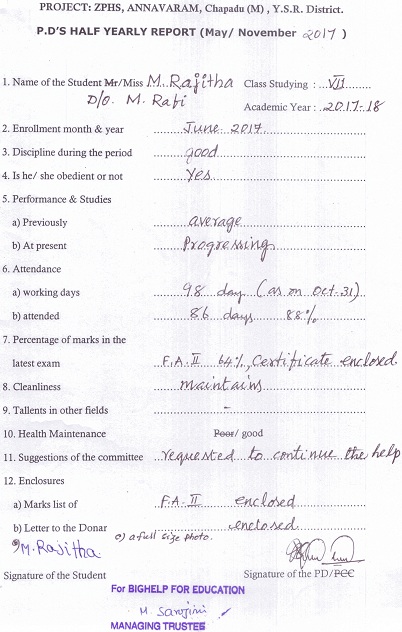 PROJECT: ZPHS, ANNAVARAM, Chapadu (M) , Y.S.R. District.
P.D'S HALF YEARLY REPORT (May/ November 2017 )
1. Name of the Student Mr/Miss M. Rajitha Class Studying : VII
D/o. M. Rafi Academic Year : 2017-18
2. Enrollment month & year June 2017
3. Discipline during the period good
4. Is he/ she obedient or not Yes
5. Performance & Studies
a) Previously average
b) At present Progressing
6. Attendance
a) working days 98 day (as on oct-31)
b) attended 86 days 88%
7. Percentage of marks in the
latest exam F.A. II 64%, Certificate enclosed
8. Cleanliness maintains
9. Tallents in other fields -
10. Health Maintenance Poor/ good
11. Suggestions of the committee requested to continue the help
12. Enclosures
a) Marks list of F.A. II enclosed
b) Letter to the Donar enclosed
c) a full size photo.
M. Rajitha
Signature of the Student Signature of the PD/PCC
For BIGHELP FOR EDUCATION
M. Sarojini
MANAGING TRUSTEE